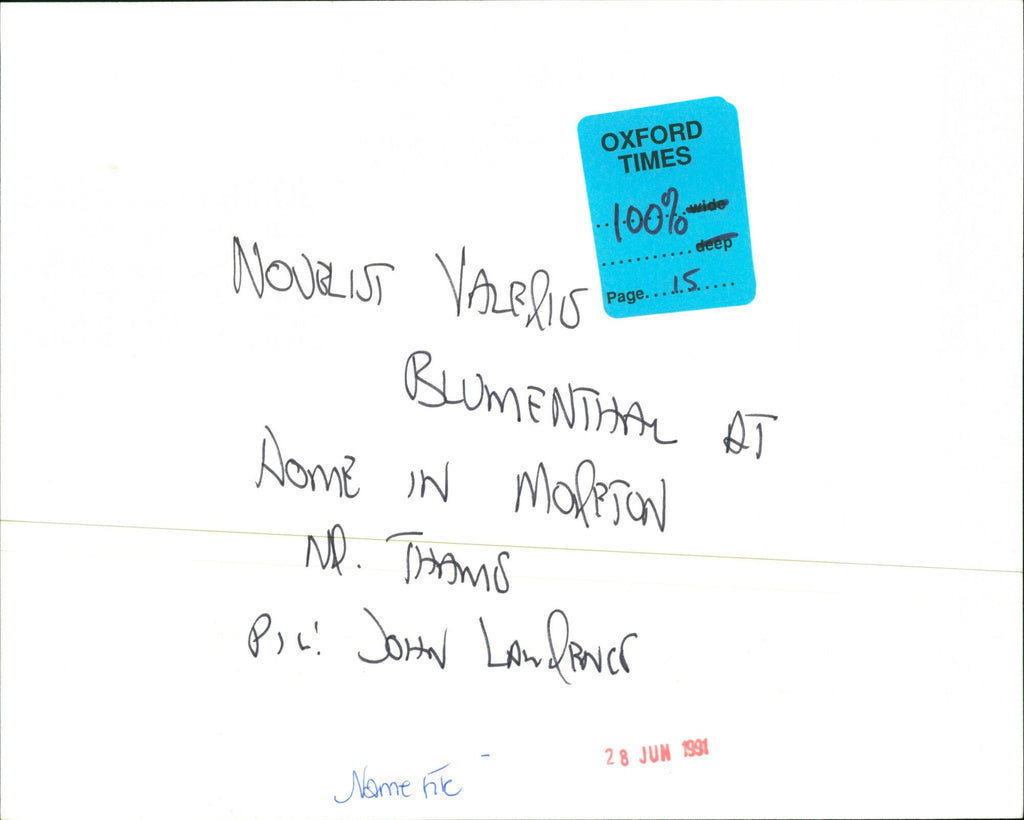 OXFORD
TIMES
100% wide
deep
Page....15
NOVELIST VALERIE
BLUMENTHAL AT
HOME IN MORETON
NR. THAME
PIC: JOHN LAWRENCE
28 JUN 1991
Name file